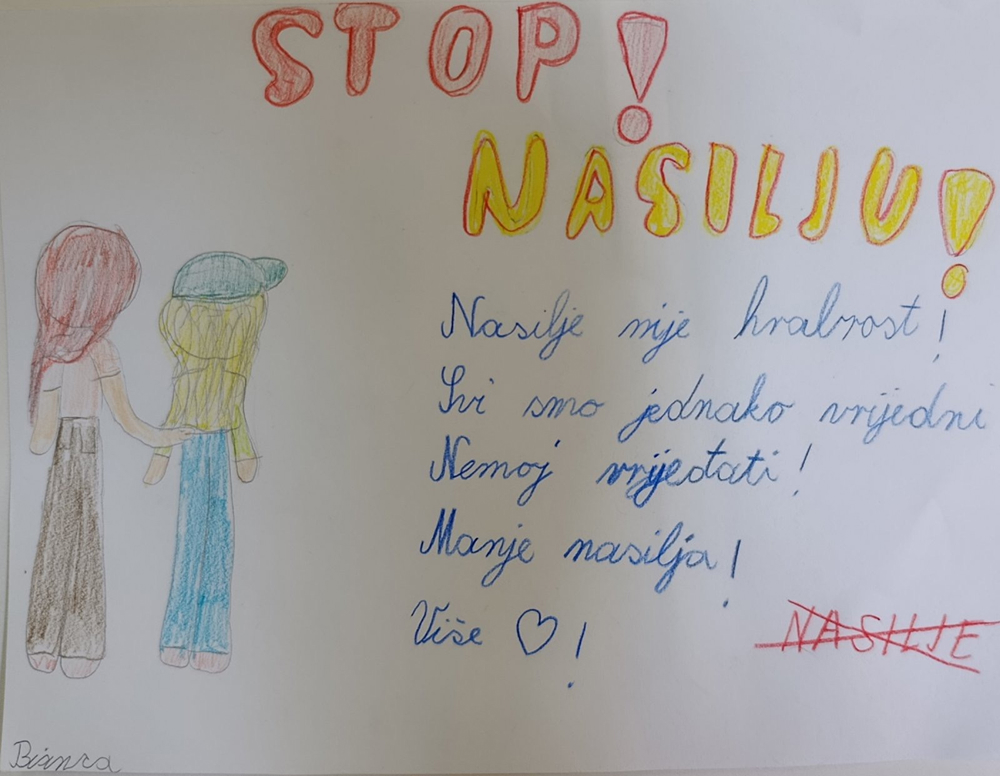 STOP!
NASILJU!
Nasilje nije hrabrost!
Svi smo jednako vrijedni
Nemoj vrijeđati!
Manje nasilja!
Više ♡!
NASILJE
Bianca